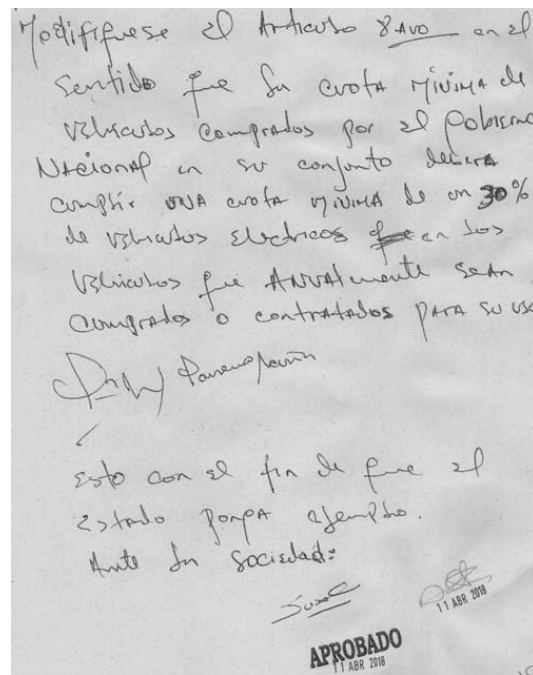 Modifíquese el Artículo 8avo en el
Sentido que la cuota mínima de
Vehículos Comprados por el Gobierno
Nacional en su conjunto debera
cumplir una cuota mínima de un 30%
de vehiculos Electricos que en los
Vehículos que Anualmente sean
Comprados o contratados para su uso
Esto con el fin de que el
Estado ponga ejemplo.
Ante la Sociedad:
11 ABR 2018
APROBADO
11 ABR 2018